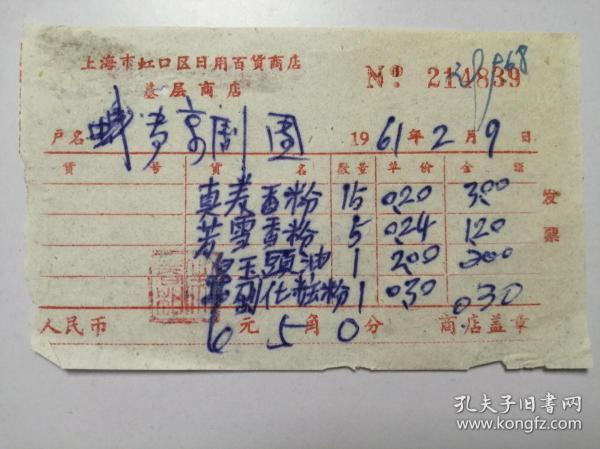 上海市虹口区日用百貨商店
基层商店
№ 214839
568
户名 京剧团 1961年2月9日
貨号 貨名 数量 单价 金額
真麦香粉 15 0.20 3.00
芳雪香粉 5 0.24 1.20
白玉頭油 1 2.00 2.00
化粧粉 1 0.30 0.30
发票
人民币 6元5角0分 商店盖章
孔夫子旧书网
www.kongfz.com